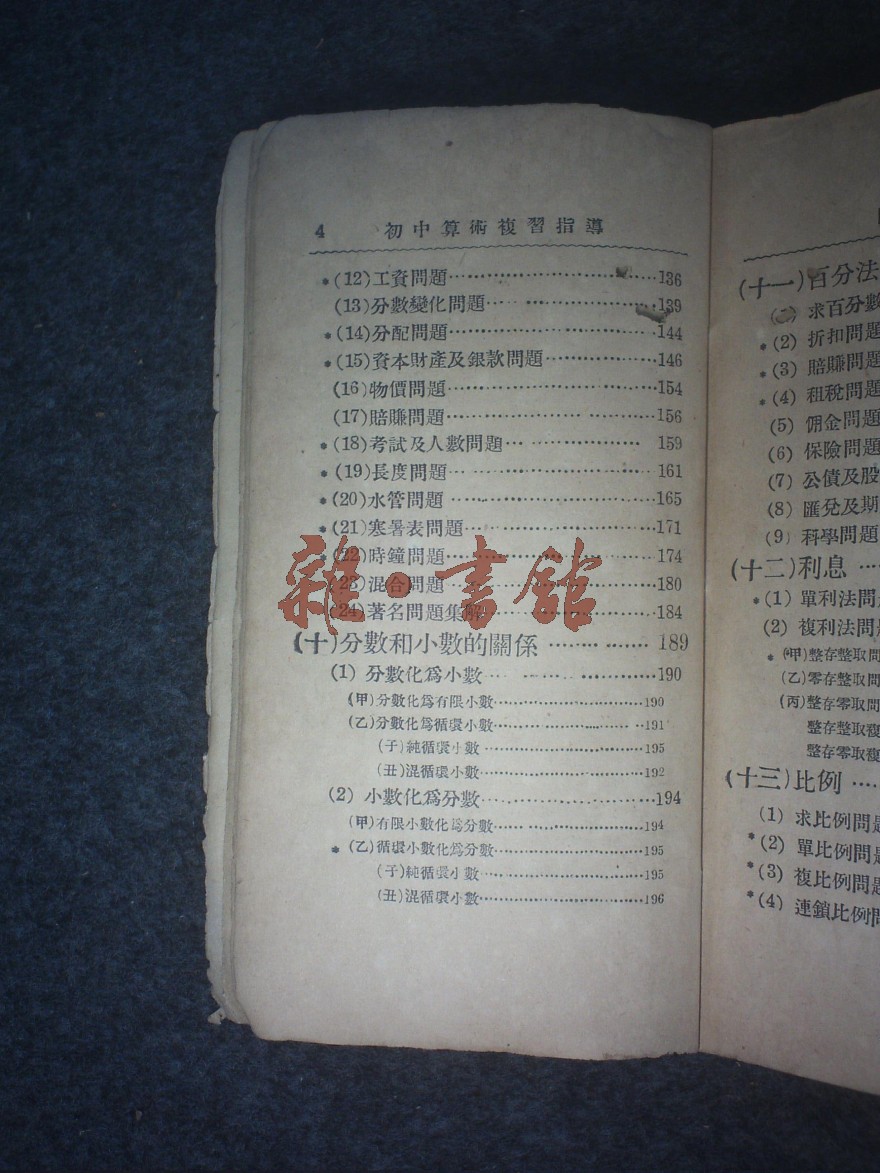 4 初中算術複習指導
*(12)工資問題……136
(13)分數變化問題……139
*(14)分配問題……144
*(15)資本財產及銀款問題……146
(16)物價問題……154
(17)賠賺問題……156
*(18)考試及人數問題……159
*(19)長度問題……161
*(20)水管問題……165
*(21)寒暑表問題……171
*(22)時鐘問題……174
(23)混合問題……180
(24)著名問題集解……184
(十)分數和小數的關係……189
(1) 分數化爲小數……190
(甲)分數化爲有限小數……190
(乙)分數化爲循環小數……191
(子)純循環小數……195
(丑)混循環小數……192
(2) 小數化爲分數……194
(甲)有限小數化爲分數……194
*(乙)循環小數化爲分數……195
(子)純循環小數……195
(丑)混循環小數……196
雜·書館
(十一)百分法
(1) 求百分數
*(2) 折扣問題
*(3) 賠賺問題
*(4) 租稅問題
(5) 佣金問題
(6) 保險問題
(7) 公債及股
(8) 匯兌及期
(9) 科學問題
(十二)利息……
*(1) 單利法問題
(2) 複利法問題
*(甲)整存整取問
(乙)零存整取問
(丙)整存零取問
整存整取複
整存零取複
(十三)比例……
(1) 求比例問題
*(2) 單比例問題
*(3) 複比例問題
*(4) 連鎖比例問